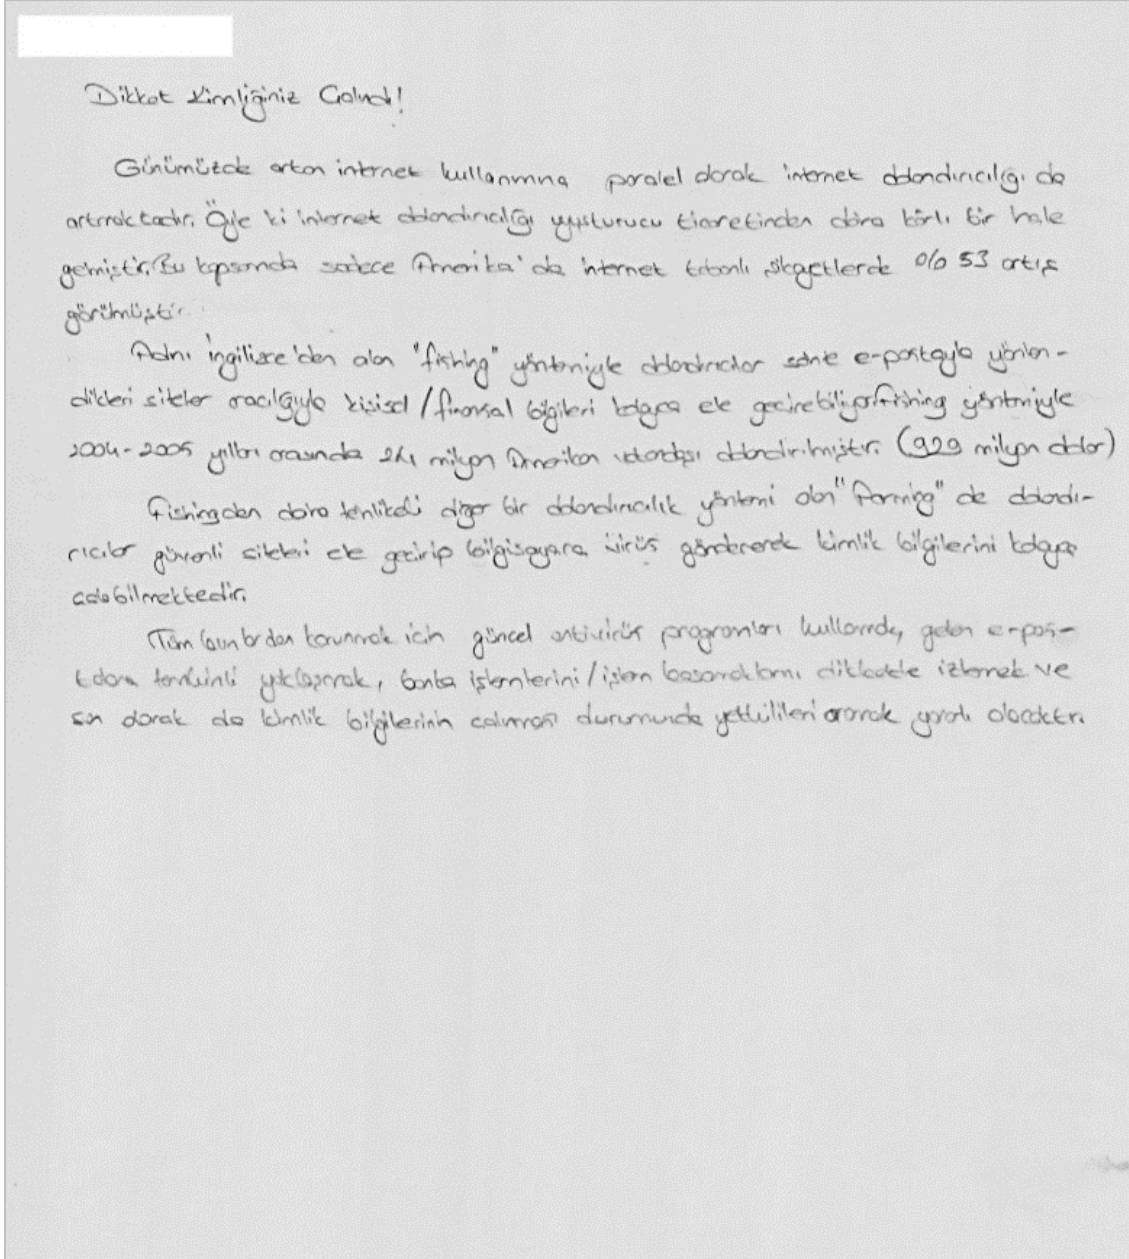 Dikkat Kimliğiniz Çalındı!
Günümüzde artan internet kullanımına paralel olarak internet dolandırıcılığı da
artmaktadır. Öyle ki internet dolandırıcılığı uyuşturucu ticaretinden daha kârlı bir hale
gelmiştir. Bu kapsamda sadece Amerika'da internet tabanlı şikayetlerde %53 artış
görülmüştür.
Adını İngilizce'den alan "fishing" yöntemiyle dolandırıcılar sahte e-postayla yönlen-
dikleri siteler aracılığıyla kişisel/finansal bilgileri kolayca ele geçirebiliyor. Fishing yöntemiyle
2004-2005 yılları arasında 241 milyon Amerikan vatandaşı dolandırılmıştır. (929 milyon dolar)
Fishingden daha tehlikeli diğer bir dolandırıcılık yöntemi olan "Farming" de dolandı-
rıcılar güvenli siteleri ele geçirip bilgisayara virüs göndererek kimlik bilgilerini kolayca
çalabilmektedir.
Tüm bunlardan korunmak için güncel antivirüs programları kullanmak, gelen e-pos-
talara temkinli yaklaşmak, banka işlemlerini/işlem basamaklarını dikkatle izlemek ve
son olarak da kimlik bilgilerinin çalınması durumunda yetkilileri aramak yararlı olacaktır.